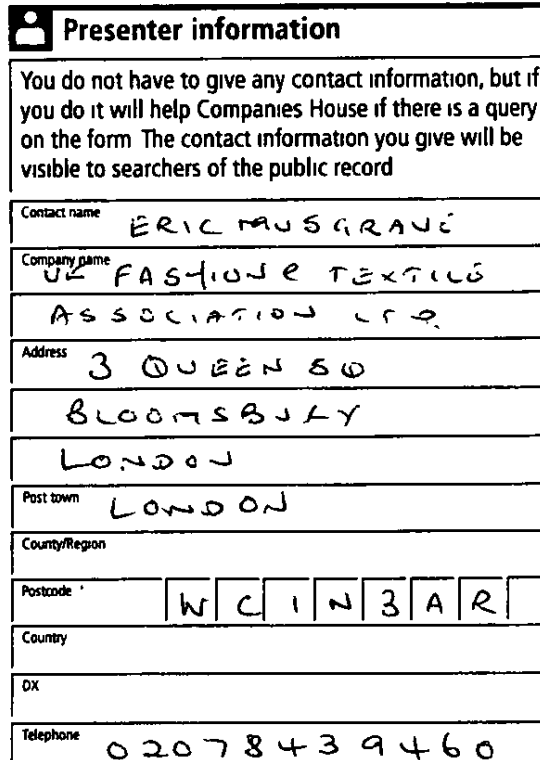 Presenter information
You do not have to give any contact information, but if
you do it will help Companies House if there is a query
on the form The contact information you give will be
visible to searchers of the public record
Contact name ERIC MUSGRAVE
Company name UK FASHION & TEXTILE
ASSOCIATION LTD.
Address 3 QUEEN SQ
BLOOMSBURY
LONDON
Post town LONDON
County/Region
Postcode WC1N3AR
Country
DX
Telephone 02078439460